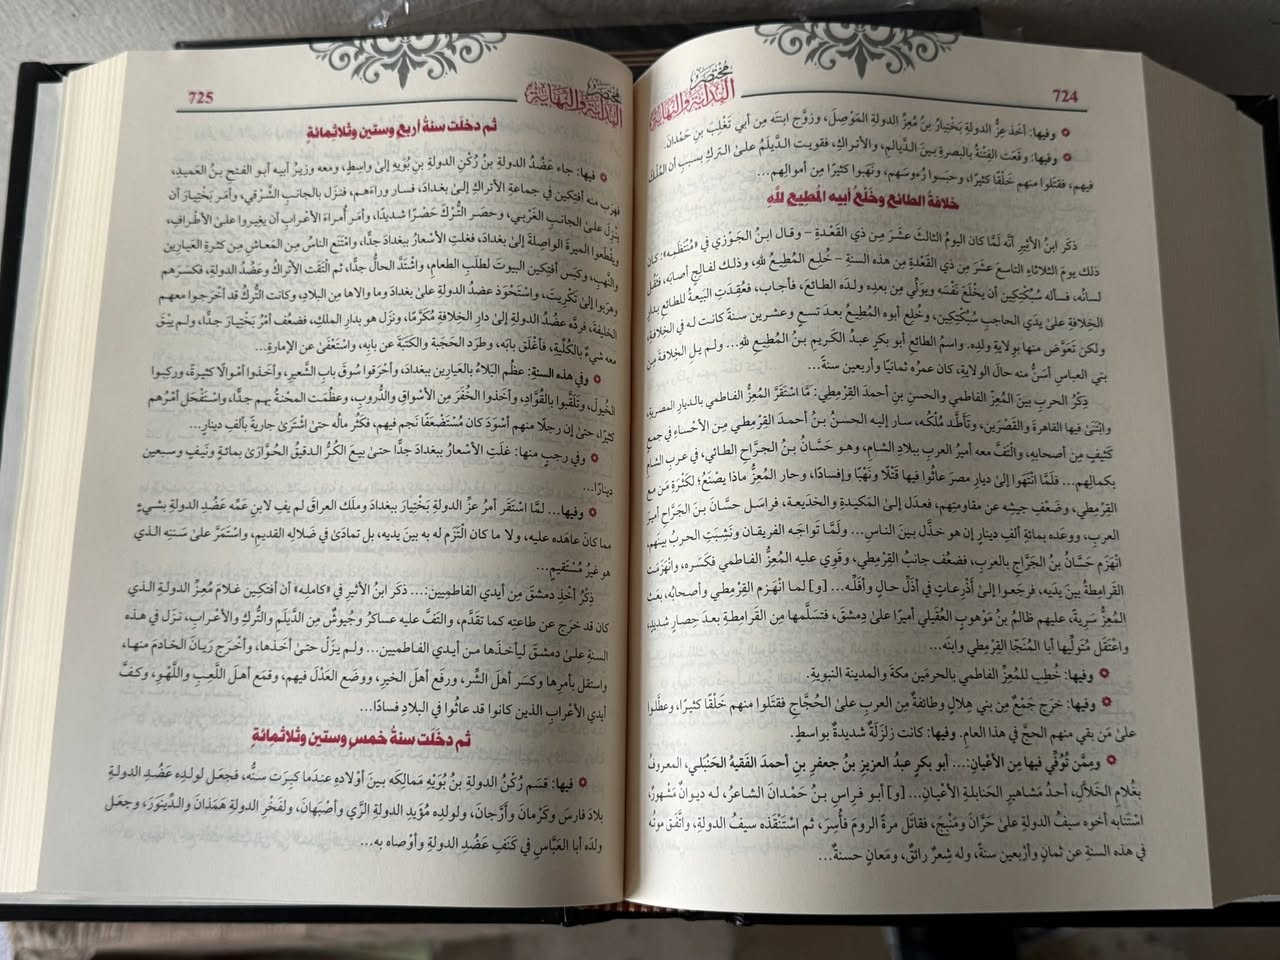 مختصر
البداية والنهاية
724
وفيها: أخذ عِزُّ الدولةِ بَخْتِيارُ بنُ مُعِزِّ الدولةِ المَوْصِلَ، وزوَّج ابنتَه مِن أبي تَغْلِبَ بنِ حَمْدَانَ.
وفيها: وقَعَت الفِتْنةُ بالبصرةِ بينَ الدَّيالمِ، والأتراكِ، فقوِيت الدَّيلَمُ علىٰ التركِ بسببِ أن المُلْكَ
فيهم، فقتَلوا منهم خَلْقًا كثيرًا، وحبَسوا رُءوسَهم، ونَهَبوا كثيرًا مِن أموالِهم...
خلافةُ الطائعِ وخَلْعُ أبيه المُطِيعِ للهِ
ذكَر ابنُ الأثيرِ أنَّه لمَّا كان اليومُ الثالثَ عشَرَ مِن ذي القَعْدةِ - وقال ابنُ الجَوْزي في «مُنْتَظَمِه»: كان
ذلك يومَ الثلاثاءِ التاسعَ عشَرَ مِن ذي القَعْدةِ مِن هذه السنةِ - خُلِع المُطِيعُ للهِ، وذلك لفالجٍ أصابَه، فثَقُل
لسانُه، فسأله سُبُكْتِكِين أن يخْلَعَ نَفْسَه ويوَلِّي مِن بعدِه ولدَه الطائعَ، فأجاب، فعُقِدَتِ البَيعةُ للطائعِ بدارِ
الخِلافةِ علىٰ يدَي الحاجبِ سُبُكْتِكِين، وخُلِع أبوه المُطِيعُ بعدَ تسعٍ وعشرين سنةً كانت له في الخِلافةِ،
ولكن تَعَوَّض منها بوِلايةِ ولدِه. واسمُ الطائعِ أبو بكرٍ عبدُ الكريمِ بنُ المُطِيعِ للهِ... ولم يلِ الخِلافةَ مِن
بني العباسِ أسَنُّ منه حالَ الولايةِ، كان عمرُه ثمانيًا وأربعين سنةً...
ذِكْرُ الحربِ بينَ المُعِزِّ الفاطمي والحسنِ بنِ أحمدَ القرْمِطي: مَّا اسْتَقَرَّ المُعِزُّ الفاطمي بالديارِ المصريةِ
وابْتَنَىٰ فيها القاهرةَ والقَصْرَين، وتأَطَّد مُلْكُه، سار إليه الحسنُ بنُ أحمدَ القِرْمِطي مِن الأحْساءِ في جمعٍ
كَثِيفٍ مِن أصحابِه، والْتَفَّ معه أميرُ العربِ ببلادِ الشامِ، وهو حَسَّانُ بنُ الجرَّاحِ الطائي، في عربِ الشامِ
بكمالِهم... فلمَّا انْتَهَوا إلىٰ ديارِ مصرَ عاثُوا فيها قَتْلًا ونَهْبًا وإفسادًا، وحار المُعِزُّ ماذا يصْنَعُ؛ لكثْرةِ مَن مع
القِرْمِطي، وضَعْفِ جيشِه عن مقاومتِهم، فعدَل إلىٰ المَكِيدةِ والخَدِيعةِ، فراسَل حسَّانَ بنَ الجَرَّاحِ أميرَ
العربِ، ووعَده بمائةِ ألفِ دينارٍ إن هو خذَّل بينَ الناسِ... ولمَّا تواجَه الفريقان ونَشِبَتِ الحربُ بينَهم،
انْهَزَم حَسَّانُ بنُ الجَرَّاحِ بالعربِ، فضعُف جانبُ القِرْمِطي، وقَوِي عليه المُعِزُّ الفاطمي فكَسَره، وانْهَزَمَت
القَرامِطةُ بينَ يدَيه، فرجَعوا إلىٰ أَذْرِعاتٍ في أذَلِّ حالٍ وأقَلِّه... [و] لما انْهَزم القِرْمِطي وأصحابُه، بعَث
المُعِزُّ سَريةً، عليهم ظالمُ بنُ مَوْهوبٍ العُقَيلي أميرًا علىٰ دمشقَ، فتسَلَّمها مِن القَرامِطةِ بعدَ حِصارٍ شديدٍ،
واعْتَقَل مُتَولِّيها أبا المُنَجّا القِرْمِطي وابنَه...
وفيها: خُطِب للمُعِزِّ الفاطمي بالحرمَين مكةَ والمدينة النبويةِ.
وفيها: خرَج جَمْعٌ مِن بني هِلالٍ وطائفةٌ مِن العربِ علىٰ الحُجَّاجِ فقتَلوا منهم خَلْقًا كثيرًا، وعطَّلوا
علىٰ مَن بقي منهم الحجَّ في هذا العامِ. وفيها: كانت زلزَلَةٌ شديدةٌ بواسطٍ.
ومِمَّن تُوُفِّي فيها مِن الأعْيانِ:... أبو بكرٍ عبدُ العزيزِ بنُ جعفرِ بنِ أحمدَ الفَقيهُ الحَنْبَلي، المعروفُ
بغُلامِ الخَلّالِ، أحدُ مَشاهيرِ الحَنابلةِ الأعْيانِ... [و] أبو فِراسِ بنُ حَمْدانَ الشاعرُ، له ديوانٌ مَشْهورٌ،
اسْتَنابه أخوه سيفُ الدولةِ علىٰ حَرَّانَ ومَنْبِجَ، فقاتَل مرةً الرومَ فأُسِر، ثم اسْتَنْقَذه سيفُ الدولةِ، واتَّفَق موتُه
في هذه السنةِ عن ثمانٍ وأرْبعين سنةً، وله شِعرٌ رائقٌ، ومَعانٍ حسنةٌ...
مختصر
البداية والنهاية
725
ثم دخلَت سنةُ أربعٍ وستين وثلاثِمائةٍ
فيها: جاء عَضُدُ الدولةِ بنُ رُكْنِ الدولةِ بنِ بُوَيهِ إلىٰ واسِطٍ، ومعه وزيرُ أبيه أبو الفتحِ بنُ العَميدِ،
فهرَب منه أفتِكين في جماعةِ الأتراكِ إلىٰ بغدادَ، فسار وراءَهم، فنزَل بالجانبِ الشَّرْقي، وأمَر بَخْتِيارَ أن
يَنْزِلَ علىٰ الجانبِ الغَرْبي، وحصَر التُّرْكَ حَصْرًا شديدًا، وأمَر أُمراءَ الأعْرابِ أن يغيروا علىٰ الأطْرافِ،
ويقْطَعوا المِيرةَ الواصلةَ إلىٰ بغدادَ، فغلَتِ الأسْعارُ ببغدادَ جدًّا، وامْتَنَع الناسُ مِن المَعاشِ مِن كثرةِ العَيارِين
والنَّهبِ، وكبَس أفتِكين البيوتَ لطَلَبِ الطعامِ، واشْتَدَّ الحالُ جدًّا، ثم الْتَقَت الأتراكُ وعَضُدُ الدولةِ، فكَسَرهم
وهرَبوا إلىٰ تَكْريتَ، واسْتَحْوَذ عضدُ الدولةِ علىٰ بغدادَ وما والاها مِن البلادِ، وكانت التُّركُ قد أخْرَجوا معهم
الخليفةَ، فردَّه عضُدُ الدولةِ إلىٰ دارِ الخِلافةِ مُكَرَّمًا، ونزَل هو بدارِ الملكِ، فضعُف أمْرُ بَخْتِيارَ جدًّا، ولم يبْقَ
معه شيءٌ بالكُلِّيةِ، فأغْلَق بابَه، وطرَد الحَجَبةَ والكتَبَةَ عن بابِه، واسْتَعْفَىٰ عن الإمارةِ...
وفي هذه السنةِ: عظُم البَلاءُ بالعَيارِين ببغدادَ، وأحْرَقوا سُوقَ بابِ الشَّعيرِ، وأخَذوا أموالًا كثيرةً، وركِبوا
الخُيولَ، وتلَقَّبوا بالقُوَّادِ، وأخَذوا الخُفَرَ مِن الأسْواقِ والدُّروبِ، وعظُمَت المِحْنةُ بهم جدًّا، واستَفْحَل أمْرُهم
كثيرًا، حتىٰ إن رجلًا منهم أسْوَدَ كان مُسْتَضْعَفًا نَجم فيهم، فكَثُر مالُه حتىٰ اشْتَرَىٰ جاريةً بألفِ دينارٍ...
وفي رجبٍ منها: غلَتِ الأسْعارُ ببغدادَ جدًّا حتىٰ بِيعَ الكُرُّ الدقيقُ الحُوَّارَىٰ بمائةٍ ونَيفٍ وسبعين
دينارًا...
وفيها... لمَّا اسْتَقَر أمرُ عزِّ الدولةِ بَخْتِيارَ ببغدادَ وملَك العراقَ لم يفِ لابنِ عَمِّه عَضُدِ الدولةِ بشيءٍ
مما كانَ عاهَده عليه، ولا ما كان الْتَزَم له به بينَ يديه، بل تمادَىٰ في ضَلالِه القديمِ، واستَمَرَّ علىٰ سَنَتِه الذي
هو غيرُ مُسْتَقيمٍ...
ذِكْرُ أخْذِ دمشقَ مِن أيدي الفاطمِيين:... ذكَر ابنُ الأثيرِ في «كامله» أن أفتكين غلامَ مُعِزِّ الدولةِ الذي
كان قد خرَج عن طاعتِه كما تقدَّم، والتَفَّ عليه عساكرُ وجُيوشٌ مِن الدَّيلَمِ والتُّركِ والأعْرابِ، نزَل في هذه
السنةِ علىٰ دمشقَ ليأخذَها من أيدي الفاطميين... ولم يزَلْ حتىٰ أخَذها، وأخْرَج رَيانَ الخادمَ منها،
واستقل بأمرِها وكسَر أهلَ الشَّرِ، ورفَع أهلَ الخيرِ، ووضَع العَدْلَ فيهم، وقمَع أهلَ اللَّعِبِ واللَّهْوِ، وكَفَّ
أيدي الأعْرابِ الذين كانوا قد عاثُوا في البلادِ فسادًا...
ثم دخلَت سنةُ خمسٍ وستين وثلاثِمائةٍ
فيها: قسَم رُكْنُ الدولةِ بنُ بُوَيْهِ مَمالكَه بينَ أوْلادِه عندَما كَبِرَت سنُّه، فجعَل لولدِه عَضُدِ الدولةِ
بلادَ فارسَ وكَرْمانَ وأَرَّجانَ، ولولدِه مُؤَيدِ الدولةِ الرَّي وأصْبَهانَ، ولفَخْرِ الدولةِ هَمَذانَ والدِّينَوَرَ، وجعَل
ولدَه أبا العَبَّاسِ في كَنَفِ عَضُدِ الدولةِ وأوْصاه به...